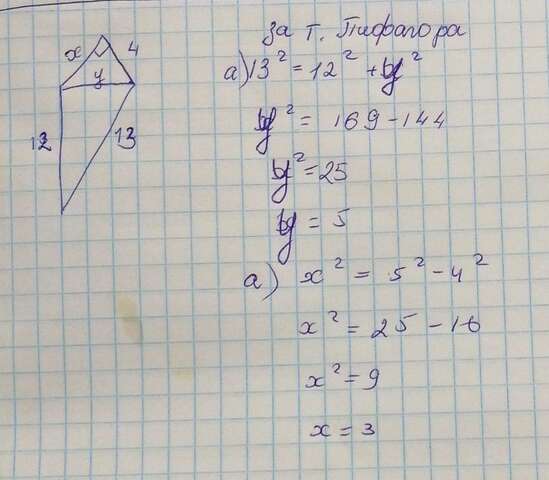 x 4
y
12 13
за т. Пифагора
а) 13² = 12² + y²
y² = 169 - 144
y² = 25
y = 5
а) x² = 5² - 4²
x² = 25 - 16
x² = 9
x = 3